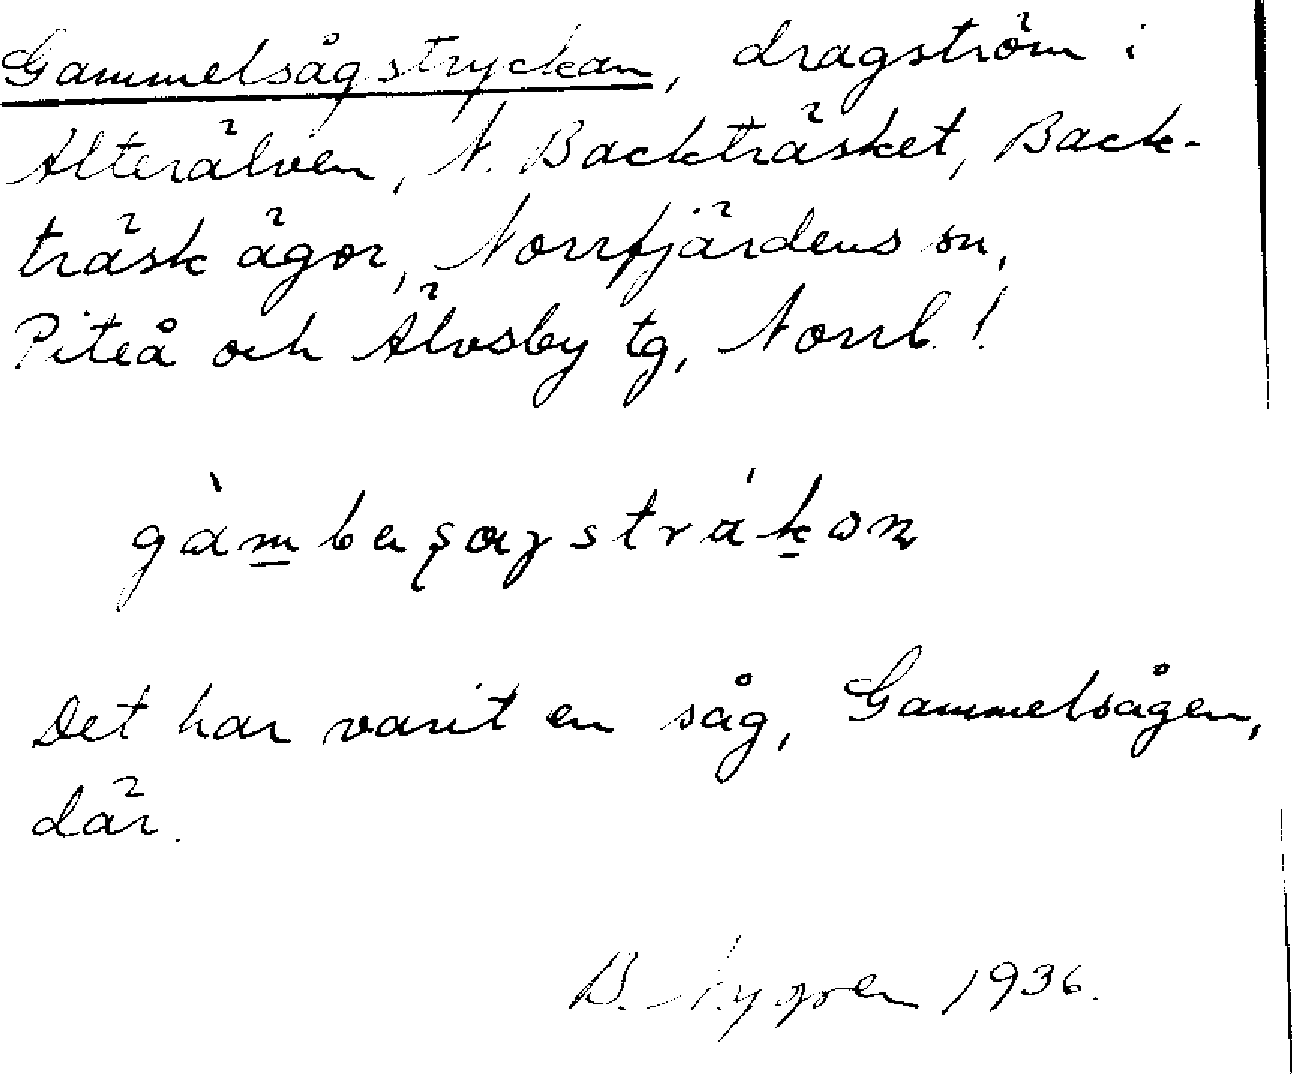 Gammelsågstryckan, dragström i
Alterälven, N. Backträsket, Back-
träsk ägor, Norrfjärdens sn,
Piteå och Älvsby tg, Norrb. !
Det har varit en såg, Gammelsågen,
där.
B. Nygren 1936.